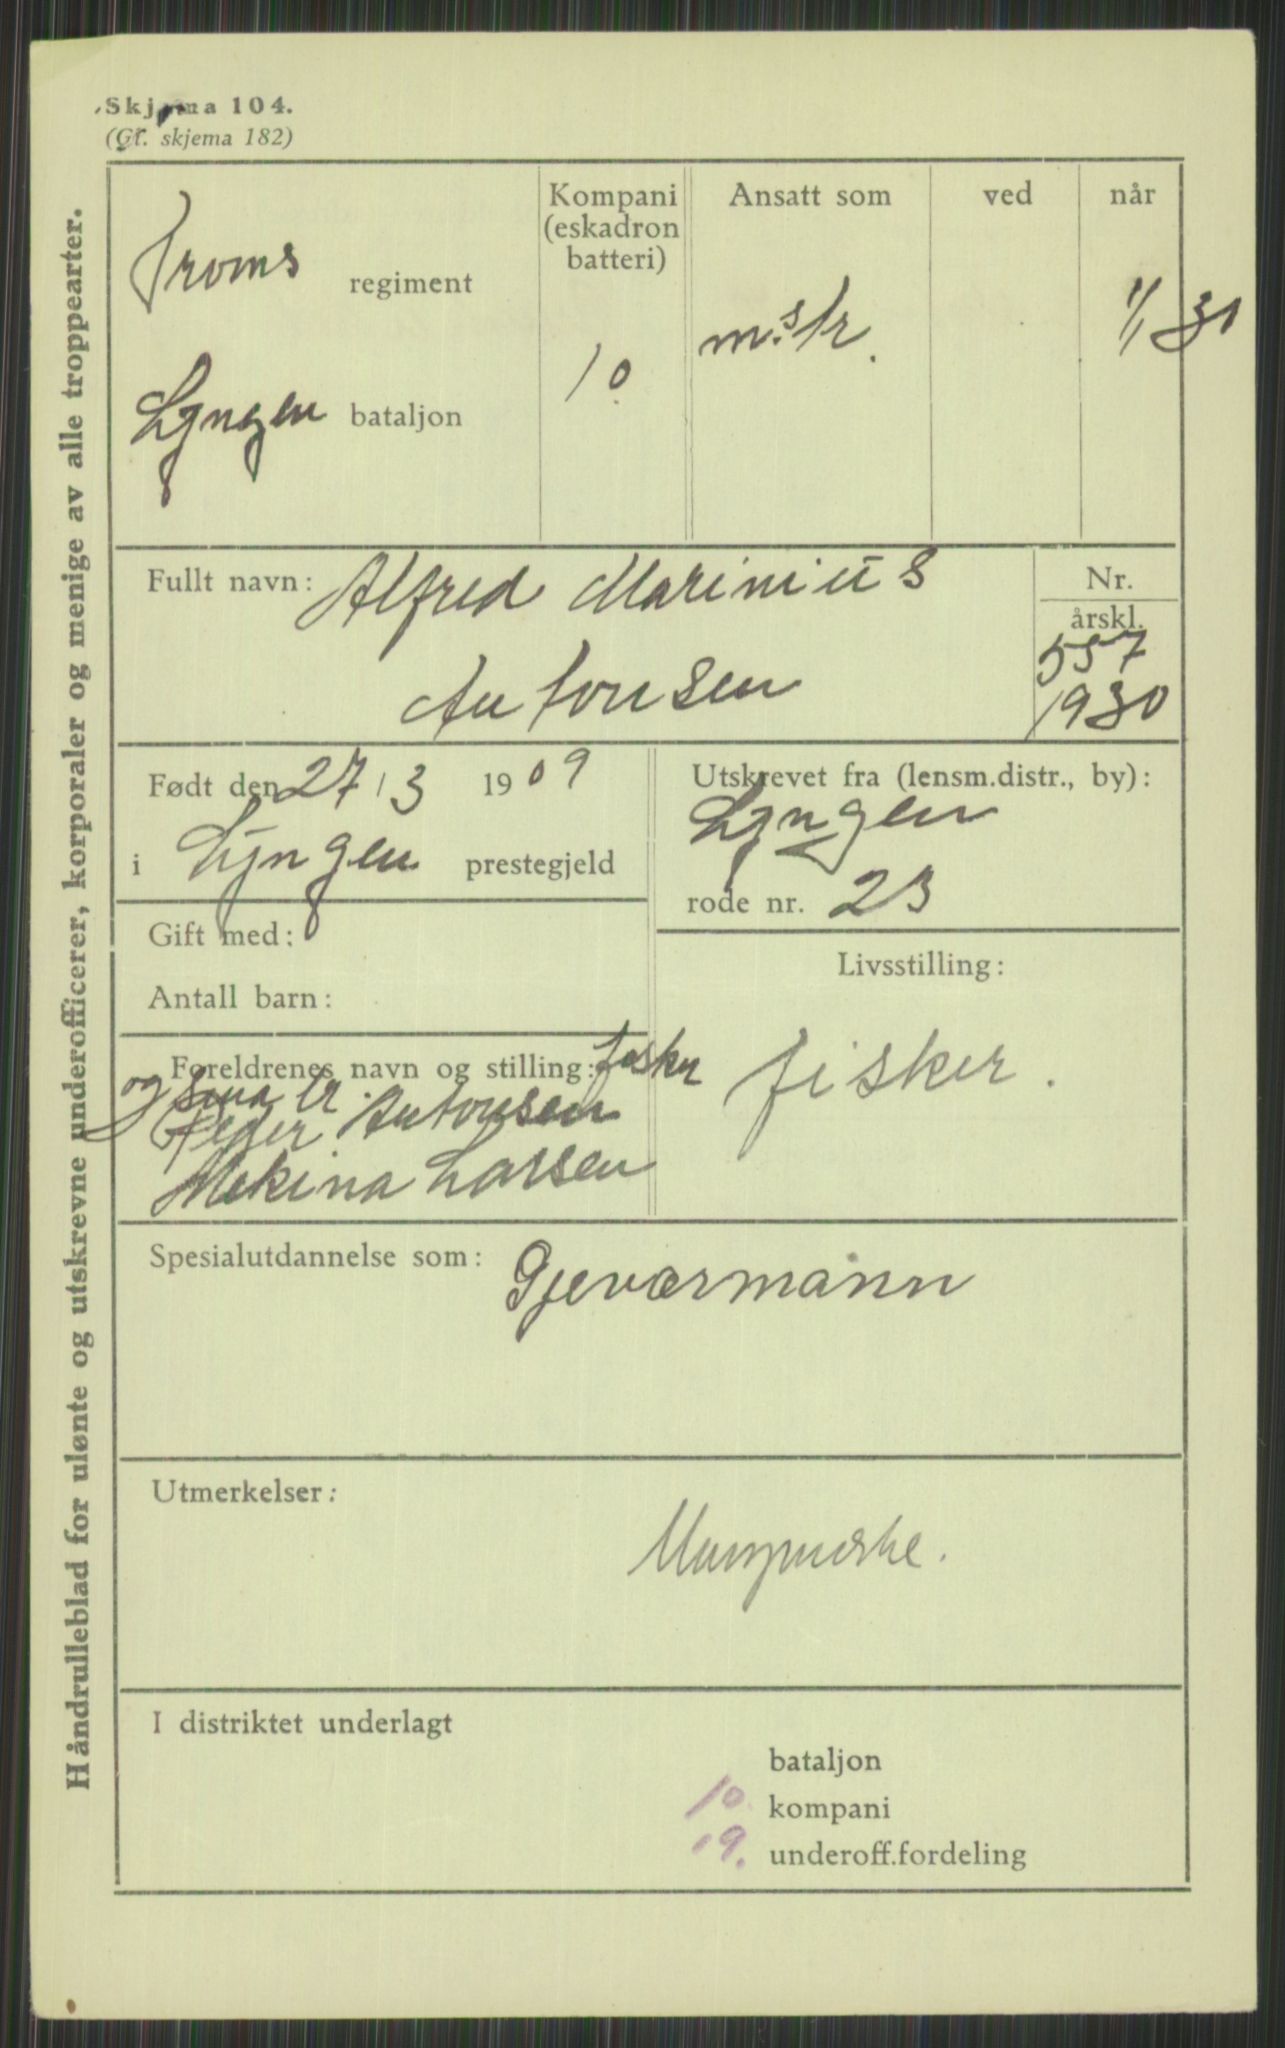 Skjema 104.
(Gl. skjema 182)
Håndrulleblad for ulønte og utskrevne underofficerer, korporaler og menige av alle troppearter.
Troms regiment
Lyngen bataljon
Kompani
(eskadron
batteri)
10
Ansatt som
ved
når
1/1 30
Fullt navn: Alfred Marinius
Antonsen
Nr.
årskl.
557
1930
Født den 27/3 1909
i Lyngen prestegjeld
Utskrevet fra (lensm.distr., by):
Lyngen
rode nr. 23
Gift med:
Antall barn:
Livsstilling:
fisker.
Foreldrenes navn og stilling: fisker
og småbr.
Peder Antonsen
Mekina Larsen
Spesialutdannelse som: Gjeværmann
Utmerkelser:
I distriktet underlagt
bataljon
10. kompani
19. underoff.fordeling